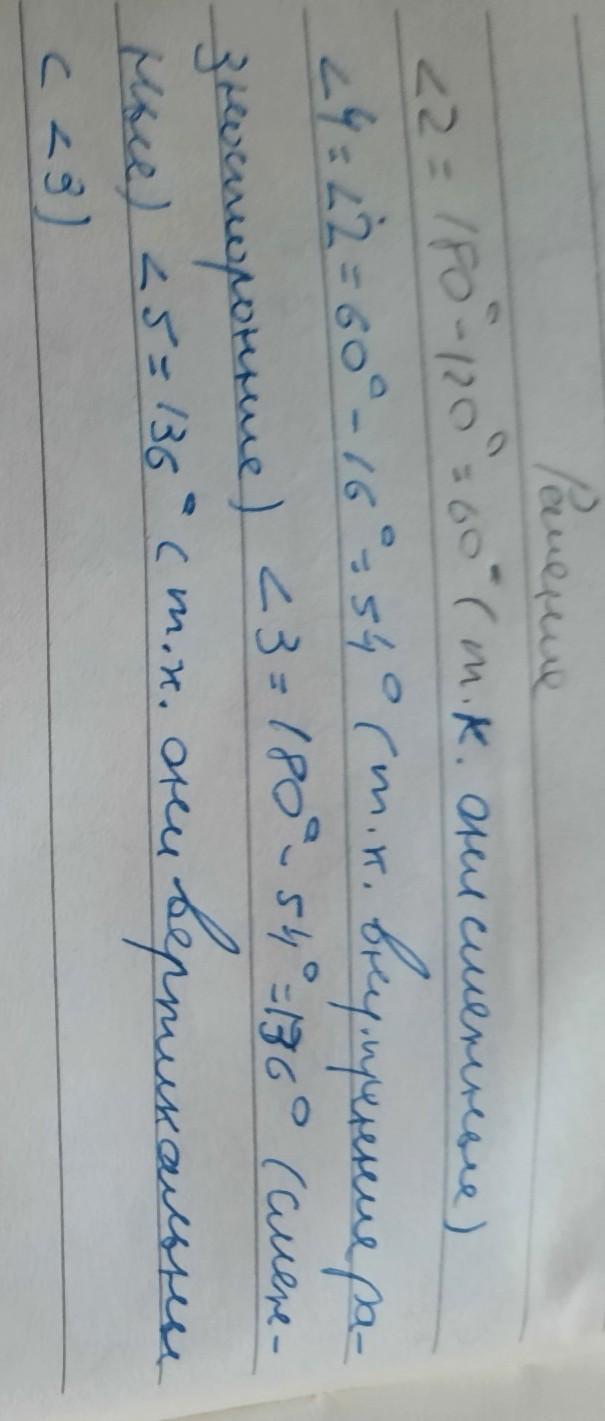 Решение
<2 = 180° - 120° = 60° (т.к. они смежные)
<4 = <2 = 60° - 16° = 54° (т.к. внутренние ра-
зносторонние) <3 = 180° - 54° = 136° (смеж-
ные) <5 = 136° (т.к. они вертикальны
с <3)